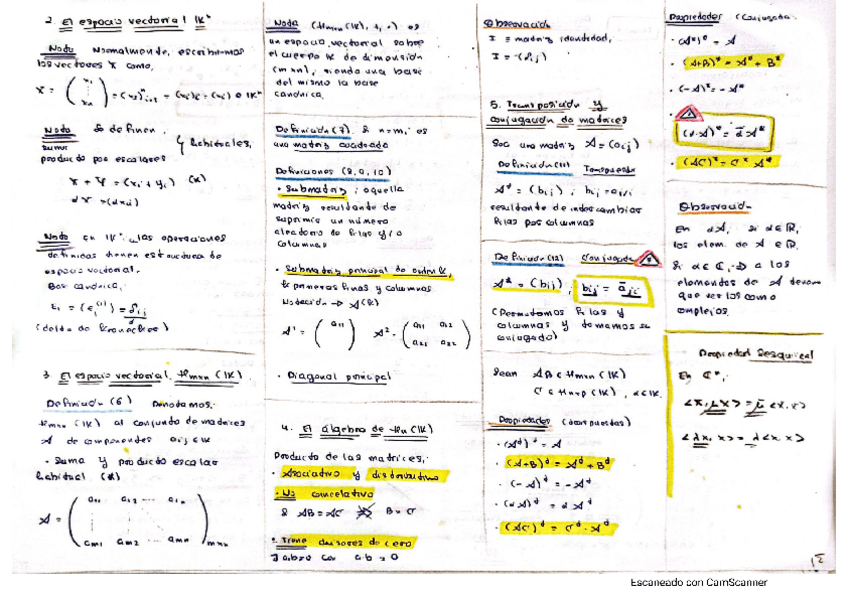 2. El espacio vectorial IKⁿ
Nota Normalmente, escribiremos
los vectores x como,
x = ( x₁ ⋮ xₙ ) = (xᵢ)ⁿᵢ₌₁ = (xᵢ)ᵢ = (xᵢ) ∈ IKⁿ
Nota Se definen,
suma y habituales,
producto por escalares
x + y = (xᵢ + yᵢ) (K)
αx = (αxᵢ)
Nota en IKⁿ, las operaciones
definidas tienen estructura de
espacio vectorial.
Base canónica,
(delta de Kronecker)
3. El espacio vectorial, Mmxn (IK)
Definición (6) Denotamos,
Mmxn (IK) al conjunto de matrices
A de componentes aij ∈ IK
• Suma y producto escalar
habitual (K)
A = ( a11 a12 ... a1n
am1 am2 ... amn ) mxn
Nota (Mmxn (IK), +, ·) es
un espacio vectorial sobre
el cuerpo IK de dimensión
(m×n), siendo una base
del mismo la base
canónica.
Definición (7). Si n=m, es
una matriz cuadrada
Definiciones (8, 9, 10)
• Submatriz; aquella
matriz resultante de
suprimir un número
aleatorio de filas y/o
columnas
• Submatriz principal de orden k,
k primeras filas y columnas
Notación → A(k)
A¹ = ( a11 ) A² = ( a11 a12
a21 a22 )
• Diagonal principal
4. El álgebra de Mn (IK)
Producto de las matrices,
• Asociativo y distributivo
• No cancelativo
Si AB = AC ⇏ B = C
• Tiene divisores de cero
∃ a,b≠0 con a·b = 0
Observación
I = matriz identidad,
I = (δij)
5. Transposición y
conjugación de matrices
Sea una matriz A = (aij)
Definición (11) Traspuesta
Aᵗ = (bij) ; bij = aji
resultante de intercambiar
filas por columnas
Definición (12) Conjugada
A* = (bij), bij = āji
(Permutamos filas y
columnas y tomamos su
conjugado)
Sean A, B ∈ Mmxn (IK)
C ∈ Mnxp (IK), α ∈ IK
Propiedades (traspuestas)
• (Aᵗ)ᵗ = A
• (A+B)ᵗ = Aᵗ + Bᵗ
• (-A)ᵗ = -Aᵗ
• (αA)ᵗ = αAᵗ
• (AC)ᵗ = Cᵗ · Aᵗ
Propiedades (Conjugada)
• (A*)* = A
• (A+B)* = A* + B*
• (-A)* = -A*
• (α·A)* = ᾱ A*
• (AC)* = C* A*
Observación
En αA, si α ∈ IR,
los elem. de A ∈ IR.
Si α ∈ ℂ, ⇒ a los
elementos de A tenemos
que verlos como
complejos.
Propiedad Sesquilineal
En ℂⁿ,
<x, μx> = μ̄ <x, x>
<λx, x> = λ <x, x>
Escaneado con CamScanner